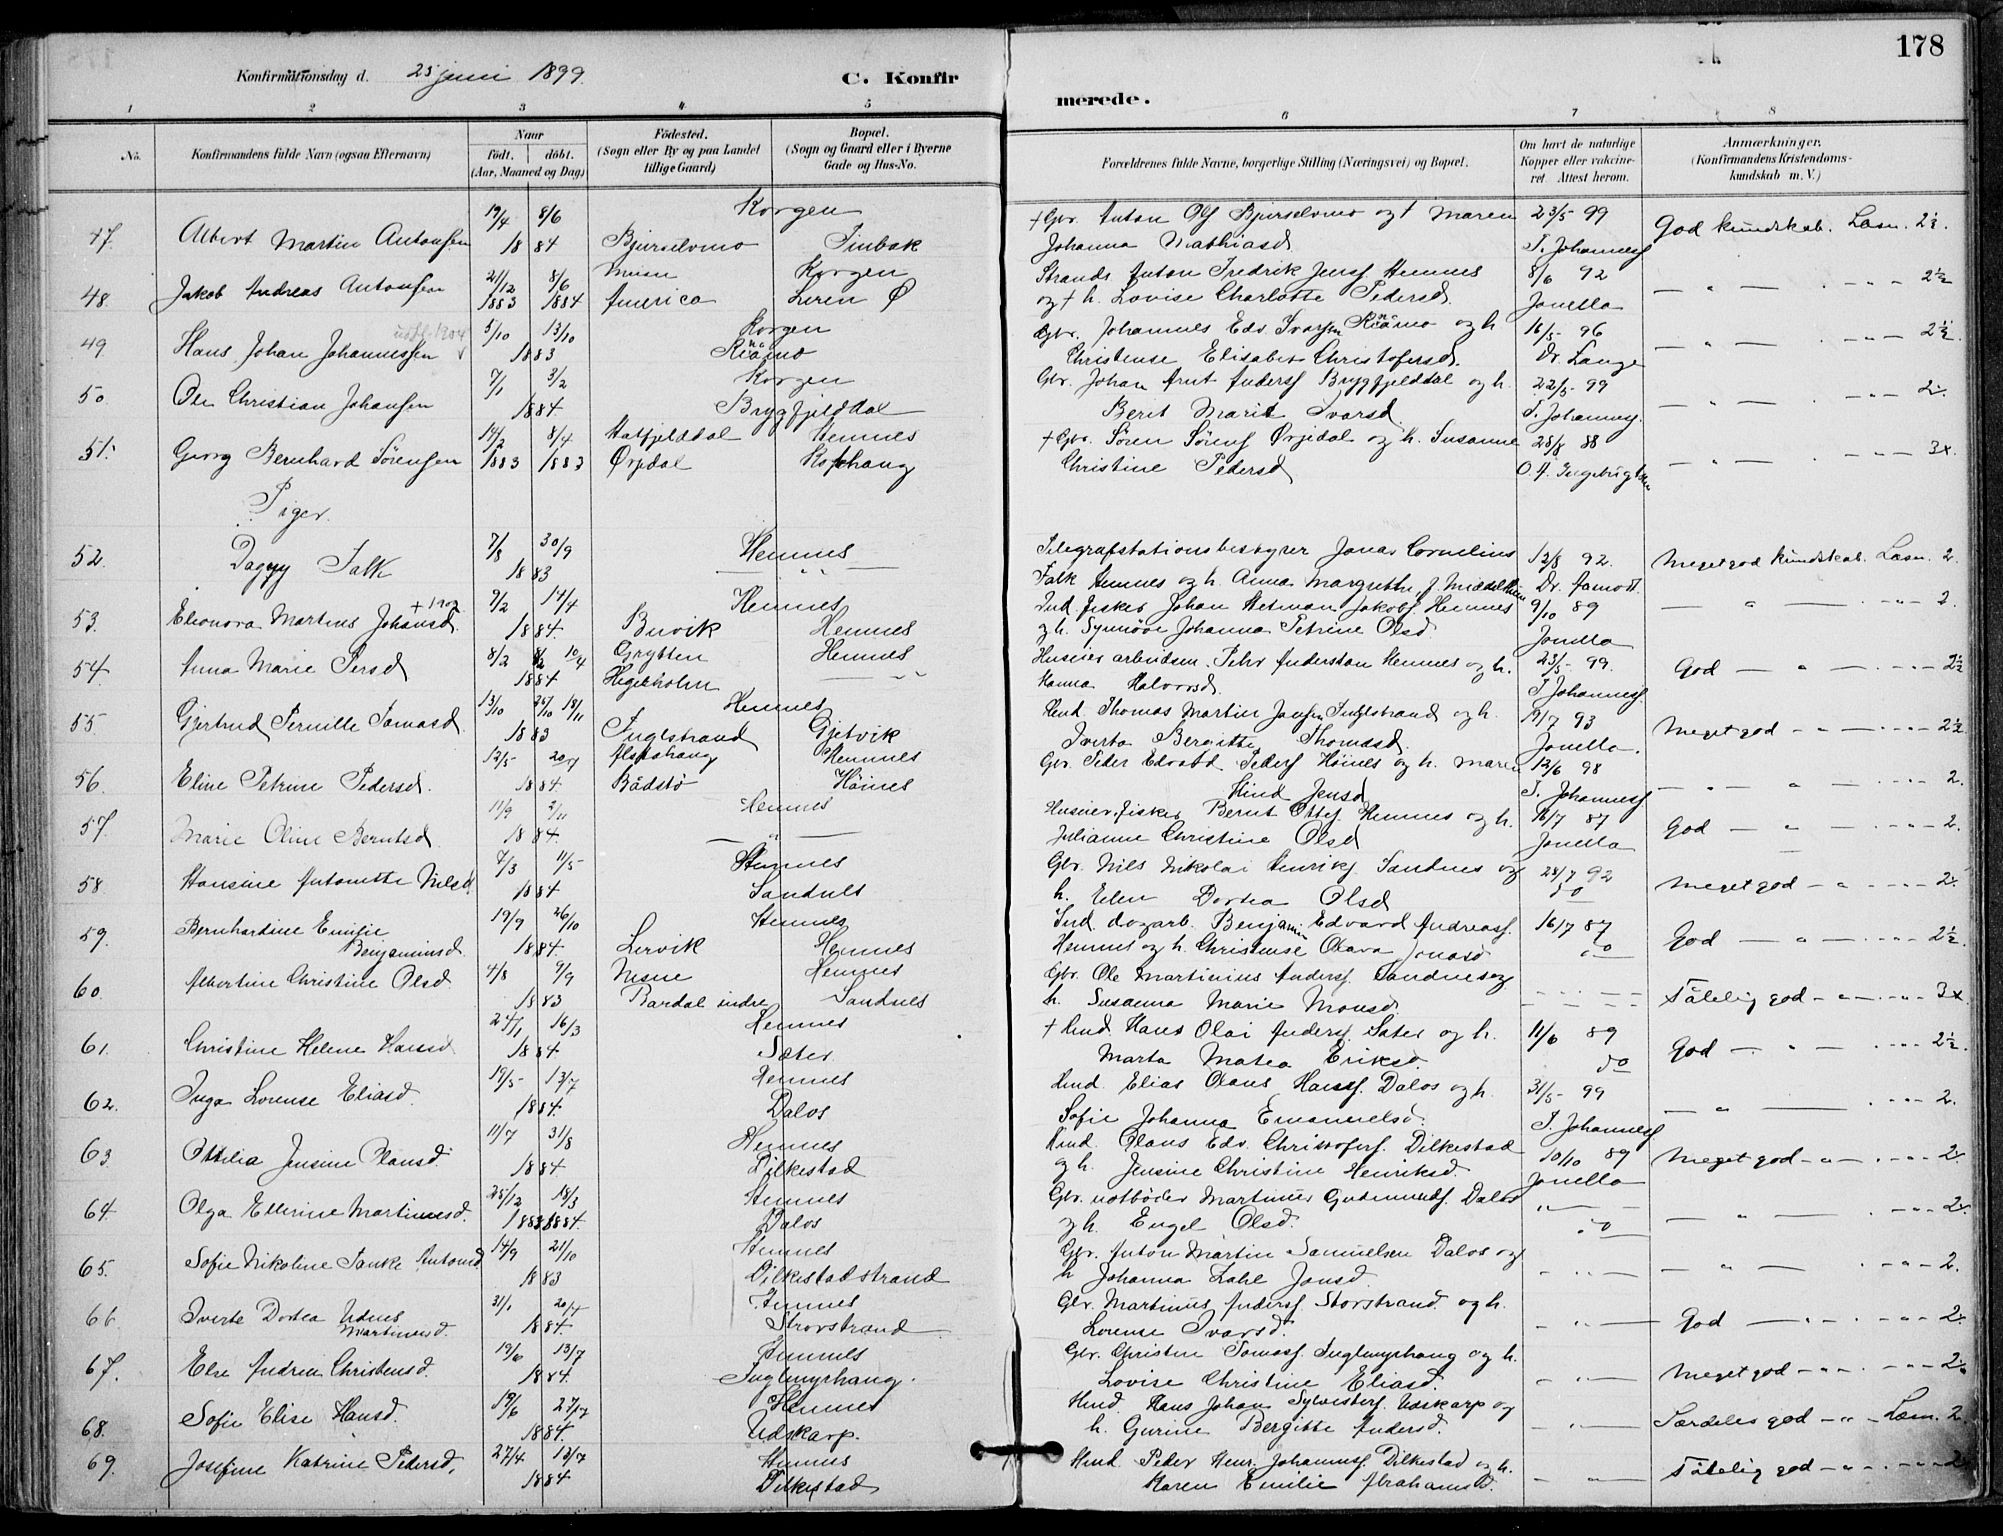 178
Konfirmationsdag d. 25 juni 1899.
C. Konfirmerede.
1 2 3 4 5 6 7 8
No.
Konfirmandens fulde Navn (ogsaa Efternavn)
Naar
födt. döbt.
(Aar, Maaned og Dag)
Födested.
(Sogn eller By og paa Landet
tillige Gaard)
Bopæl.
(Sogn og Gaard eller i Byerne
Gade og Hus-No.
Forældrenes fulde Navne, borgerlige Stilling (Næringsvei) og Bopæl.
Om havt de naturlige
Kopper eller vakcine-
ret. Attest herom.
Anmærkninger.
(Konfirmandens Kristendoms-
kundskab m. V.)
19/4 8/6 Korgen + Gbr. Anton Ols Bjurselvmo og + Maren 23/5 99 God kundskab. Læsn. 2½.
47. Albert Martin Antonsen 1884 Bjurselvmo Johanna Mathiasd T. Johannesf
21/12 8/6 Korgen Strands. Anton Fredrik Jensf Hemnes 8/6 92
48. Jakob Andreas Antonsen 1883 1884 America Leren Ø og + h. Lovise Charlotte Pedersd. Jonella 2½
5/10 13/10 Korgen Gbr. Johannes Edv. Ivarsen og h 16/5 96
49 Hans Johan Johannessen 1883 Christense Elisabet Christofersd. Dr. Lange 2½
7/1 3/2 Korgen Gbr. Johan Arnt Andersf Bryggfjelddal og h. 22/5 99
50 Ole Christian Johansen 1884 Bryggfjelddal Berit Marie Ivarsd. T. Johannesf. 2
14/2 8/4 Hatfjelddal Hemnes + Gbr. Sören Sörensf Ørjedal og h. Susanne 28/8 88
51. Georg Bernhard Sörensen 1883 1883 Ørjedal Christine Pedersd 3
Piger.
7/8 30/9 Hemnes Telegrafstationsbestyrer Jonas Cornelius 12/8 92. Meget god kundskab. Læsn. 2
52. Dagny Falk 1883 Falk Hemnes og h. Anna Margrethe
9/2 14/4 Hemnes Ind. fisker Johan Hetman Jakobsf. Hemnes 9/10 89 2
53. Eleonora Martine Johansd. 1884 Buvik Hemnes og h. Synnöve Johanna Petrine Olsd. Jonella
8/2 10/4 Grytten Hemnes Andersson Hemnes og h. 23/5 99. God 2½
54 Anna Marie Persd 1884 Hanna Halvorsd. T Johannesf.
13/10 18/11 Hemnes Hmd Thomas Martin Jensen Inglstrand og h. 19/7 93
55. Gjertrud Pernille Tomasd. 1883 Inglstrand Gjetvik Iverta Bergitte Thomasd. Jonella. Meget god 2½
12/5 Alstahaug Hemnes Gbr. Peder Edvard Pedersf Höines og h. Maren 12/6 98
56. Eline Petrine Pedersd. 1884 Bådstø Höines Jensd T. Johannesf 2.
11/9 2/11 Hemnes Husmer. fisker Bernt Ottesf Hemnes og h. 16/7 87
57. Marie Oline Berntsd 1884. Julianne Christine Olsd Jonella God 2.
7/3 11/5 Hemnes Gbr. Nils Nikolai Henriksf Sandnes og 28/7 92
58 Hansine Antonette Nilsd. 1884 Sandnes h. Elen Dortea Olsd do Meget god 2
19/9 26/10 Hemnes Ind. dagarb. Benjamin Edvard Andreasf. 16/7 87
59. Bernhardine Emilie Benjaminsd. 1884. Lervik Hemnes Hemnes og h. Christense Olava Jonasd do God 2½.
4/8 9/9 Hemnes Gbr. Ole Martinius Andersf. Sandnes og
60. Albertine Christine Olsd 1883 Rardal indre Sandnes h. Susanna Marie Monsd. Tålelig god 3
16/3 Hemnes + Hmd Hans Olai Andersf. Sæter og h. 11/6 89
61. Christine Helene Hansd 1884. Sæter Marta Matea Eriksd. do God 2½.
19/5 13/7 Hemnes Hmd. Elias Olaus Hansf. Dalos og h. 31/5 99
62. Inga Lorense Eliasd. 1884. Dalos Sofie Johanna Emanuelsd. T. Johannesf 2.
11/7 31/8 Hemnes Hmd. Olaus Edv. Christofersf. Dilkestad 10/10 89
63. Ottilia Jensine Olausd. 1884 Dilkestad og h. Jensine Christine Henriksd. Jonella Meget god 2
25/12 18/3 Hemnes Gbr. notbøder Martinus Gudmundsf. Dalos
64. Olga Ellerine Martinusd. 1883 1884. Dalos og h. Engel Olsd. do 2
14/9 21/10 Hemnes Gbr. Anton Martin Samuelsen Dalos og
65. Sofie Nikoline Tanke Antonsd 1883 Dilkestadstrand h Johanna Jonsd. 2.
31/1 20/4 Hemnes Gbr. Martinus Andersf. Storstrand og h.
66. Iverte Dortea Martinusd. 1884. Storstrand Lorense Ivarsd. God 2
19/6 13/7 Hemnes Gbr. Christen Tomasf. Inglmyrhaug og h.
67. Else Andrea Christensd. 1884. Inglmyrhaug. Lovise Christine Eliasd. Meget god 2
19/6 Hemnes Hmd. Hans Johan Sylvestersf. Udskarp og
68. Sofie Elise Hansd. 1884. Udskarp. h. Gurine Bergitte Andersd. Særdeles god Læsn. 2
27/4 13/7 Hemnes Hmd Peder Henr. Johannesf. Dilkestad og h.
69. Josefine Katrine Pedersd. 1884. Dilkestad Maren Emilie Abrahamsd. Tålelig god